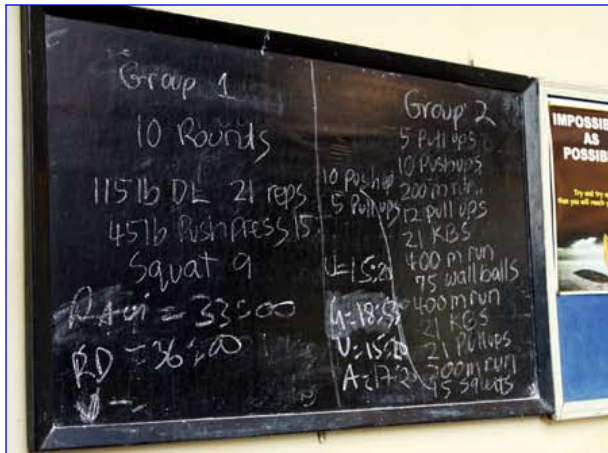 Group 1
10 Rounds
115lb DL 21 reps
45lb Push press 15
Squat 9
Ravi = 33:00
RD = 36:00
10 Pushup
5 Pullups
U=15:20
G=18:55
U=15:20
A=17:20
Group 2
5 Pull ups
10 Pushups
200 m run
12 pull ups
21 KBS
400 m run
75 wall balls
400 m run
21 KBS
21 Pullups
200m run
15 squats
IMPOSSIB
AS
POSSIBL
Try and try